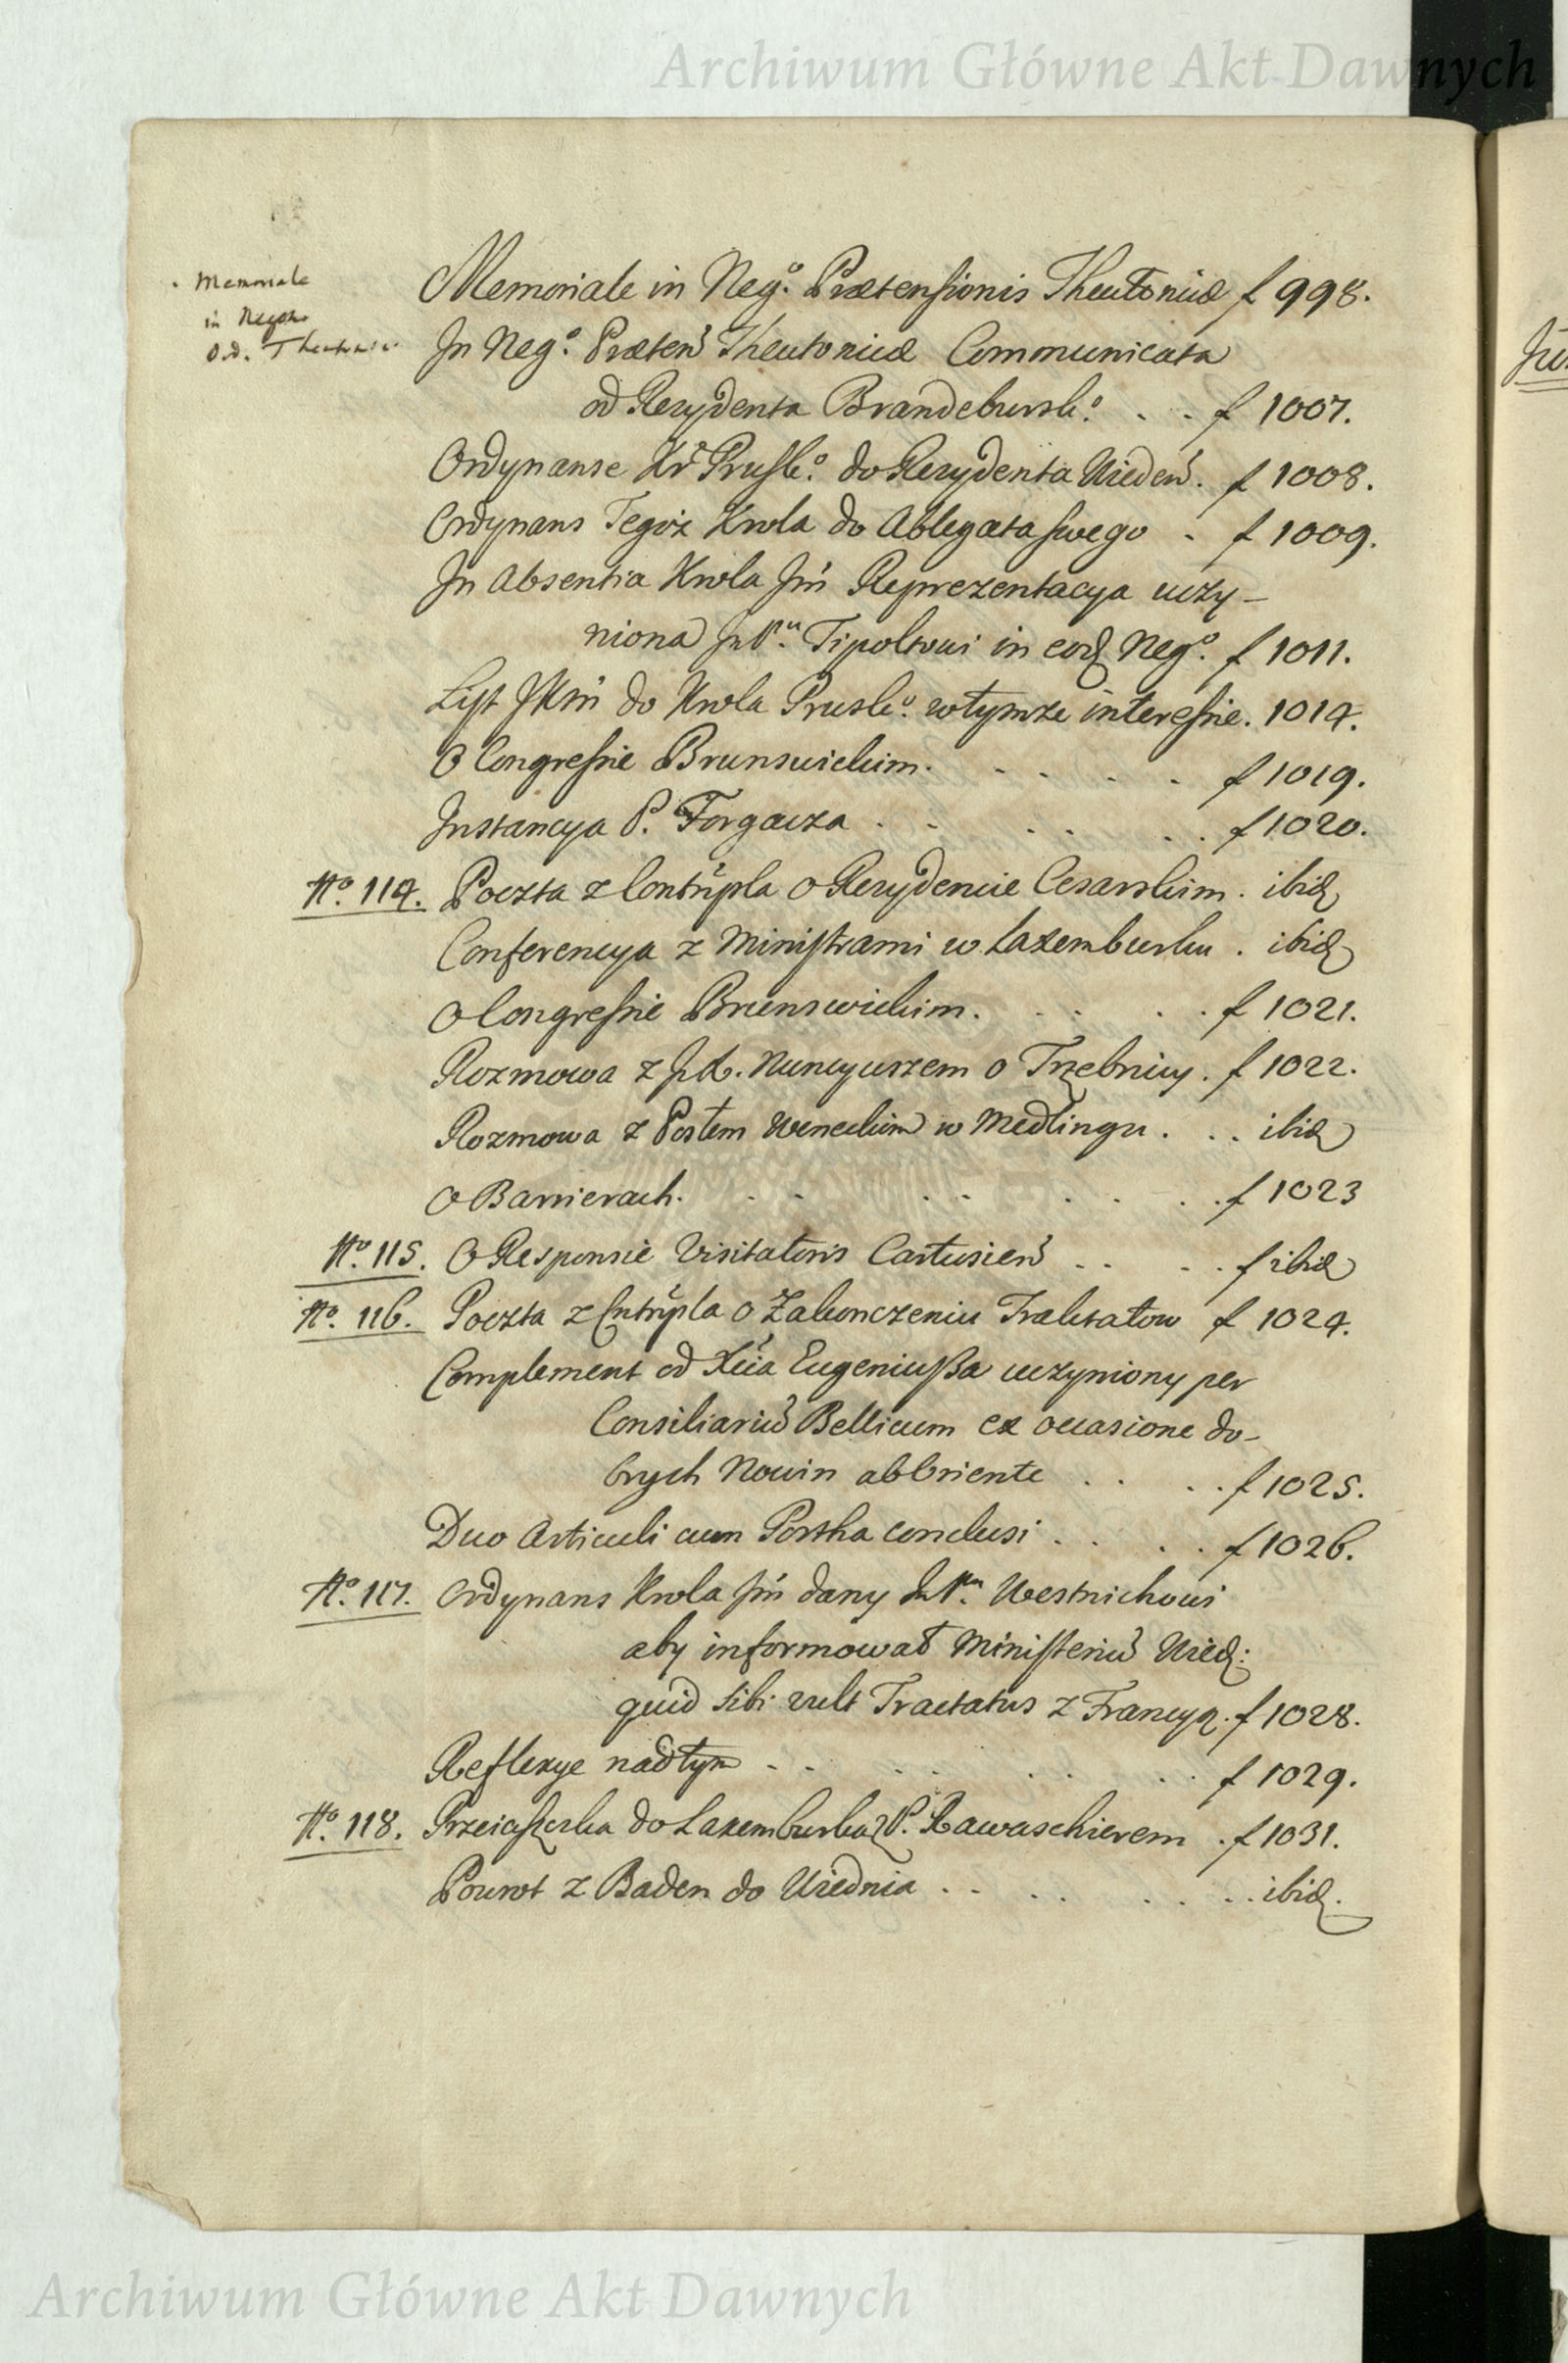 Archiwum Główne Akt Dawnych
Memoriale
in Negotio
Ord. Theutonic
Memoriale in Neg.º Prætensionis Theutonicæ f 998.
In Neg.º Præten̄ Theutonicæ Communicata
od Rezydenta Brandebursk.º . . f 1007.
Ordynanse Kr̄ Prusk.º do Rezydenta Wieden̄. f 1008.
Ordynans Tegoż Krola do Ablegata swego . f 1009.
In Absentia Krola Jm̄ Reprezentacya uczy-
niona Tipoltowi in eod Neg.º f 1011.
List JKm̄ do Krola Prusk.º w tymże interessie. 1014.
O Congressie Brunswickim. . . . . f 1019.
Instancya P. Forgacza . . . . . . f 1020.
Nº. 114. Poczta z Contrıpla o Rezydencie Cesarskim. ibid
Conferencya z Ministrami w Laxemburku . ibid
O Congressie Brunswickim. . . . . f 1021.
Rozmowa z Nuncyuszem o Trzebnicy. f 1022.
Rozmowa z Posłem Weneckim w Medlingu . . . ibid
O Barrierach. . . . . . . . . f 1023
Nº. 115. O Responsie Visitatoris Cartusien̄ . . . . f ibid
Nº. 116. Poczta z Cntrıpla o Zakonczeniu Traktatow f 1024.
Complement od Xcia Eugeniusza uczyniony per
Consiliariū Bellicum ex occasione do-
brych Nowin ab Oriente . . . . f 1025.
Duo Articuli cum Portha conclusi . . . . f 1026.
Nº. 117. Ordynans Krola Jm̄ dany Westnichowi
aby informował Ministeriū Wied:
quid sibi vult Tractatus z Francyą. f 1028.
Reflexye nad tym . . . . . . . f 1029.
Nº. 118. Przeiaszczka do Laxemburka z P. Rawaschierem . f 1031.
Powrot z Baden do Wiednia . . . . . . . ibid.
Archiwum Główne Akt Dawnych